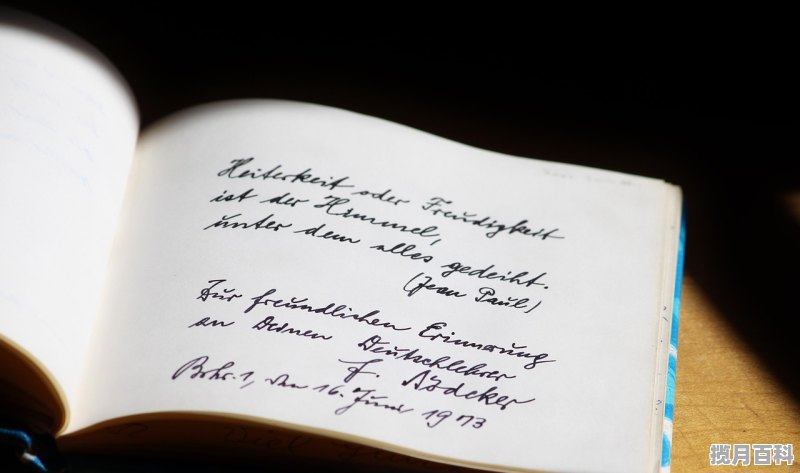 Heiterkeit oder Freudigkeit
ist der Himmel,
unter dem alles gedeiht.
(Jean Paul)
Zur freundlichen Erinnerung
an Deinen Deutschlehrer
den 16. Juni 1973
揽月百科